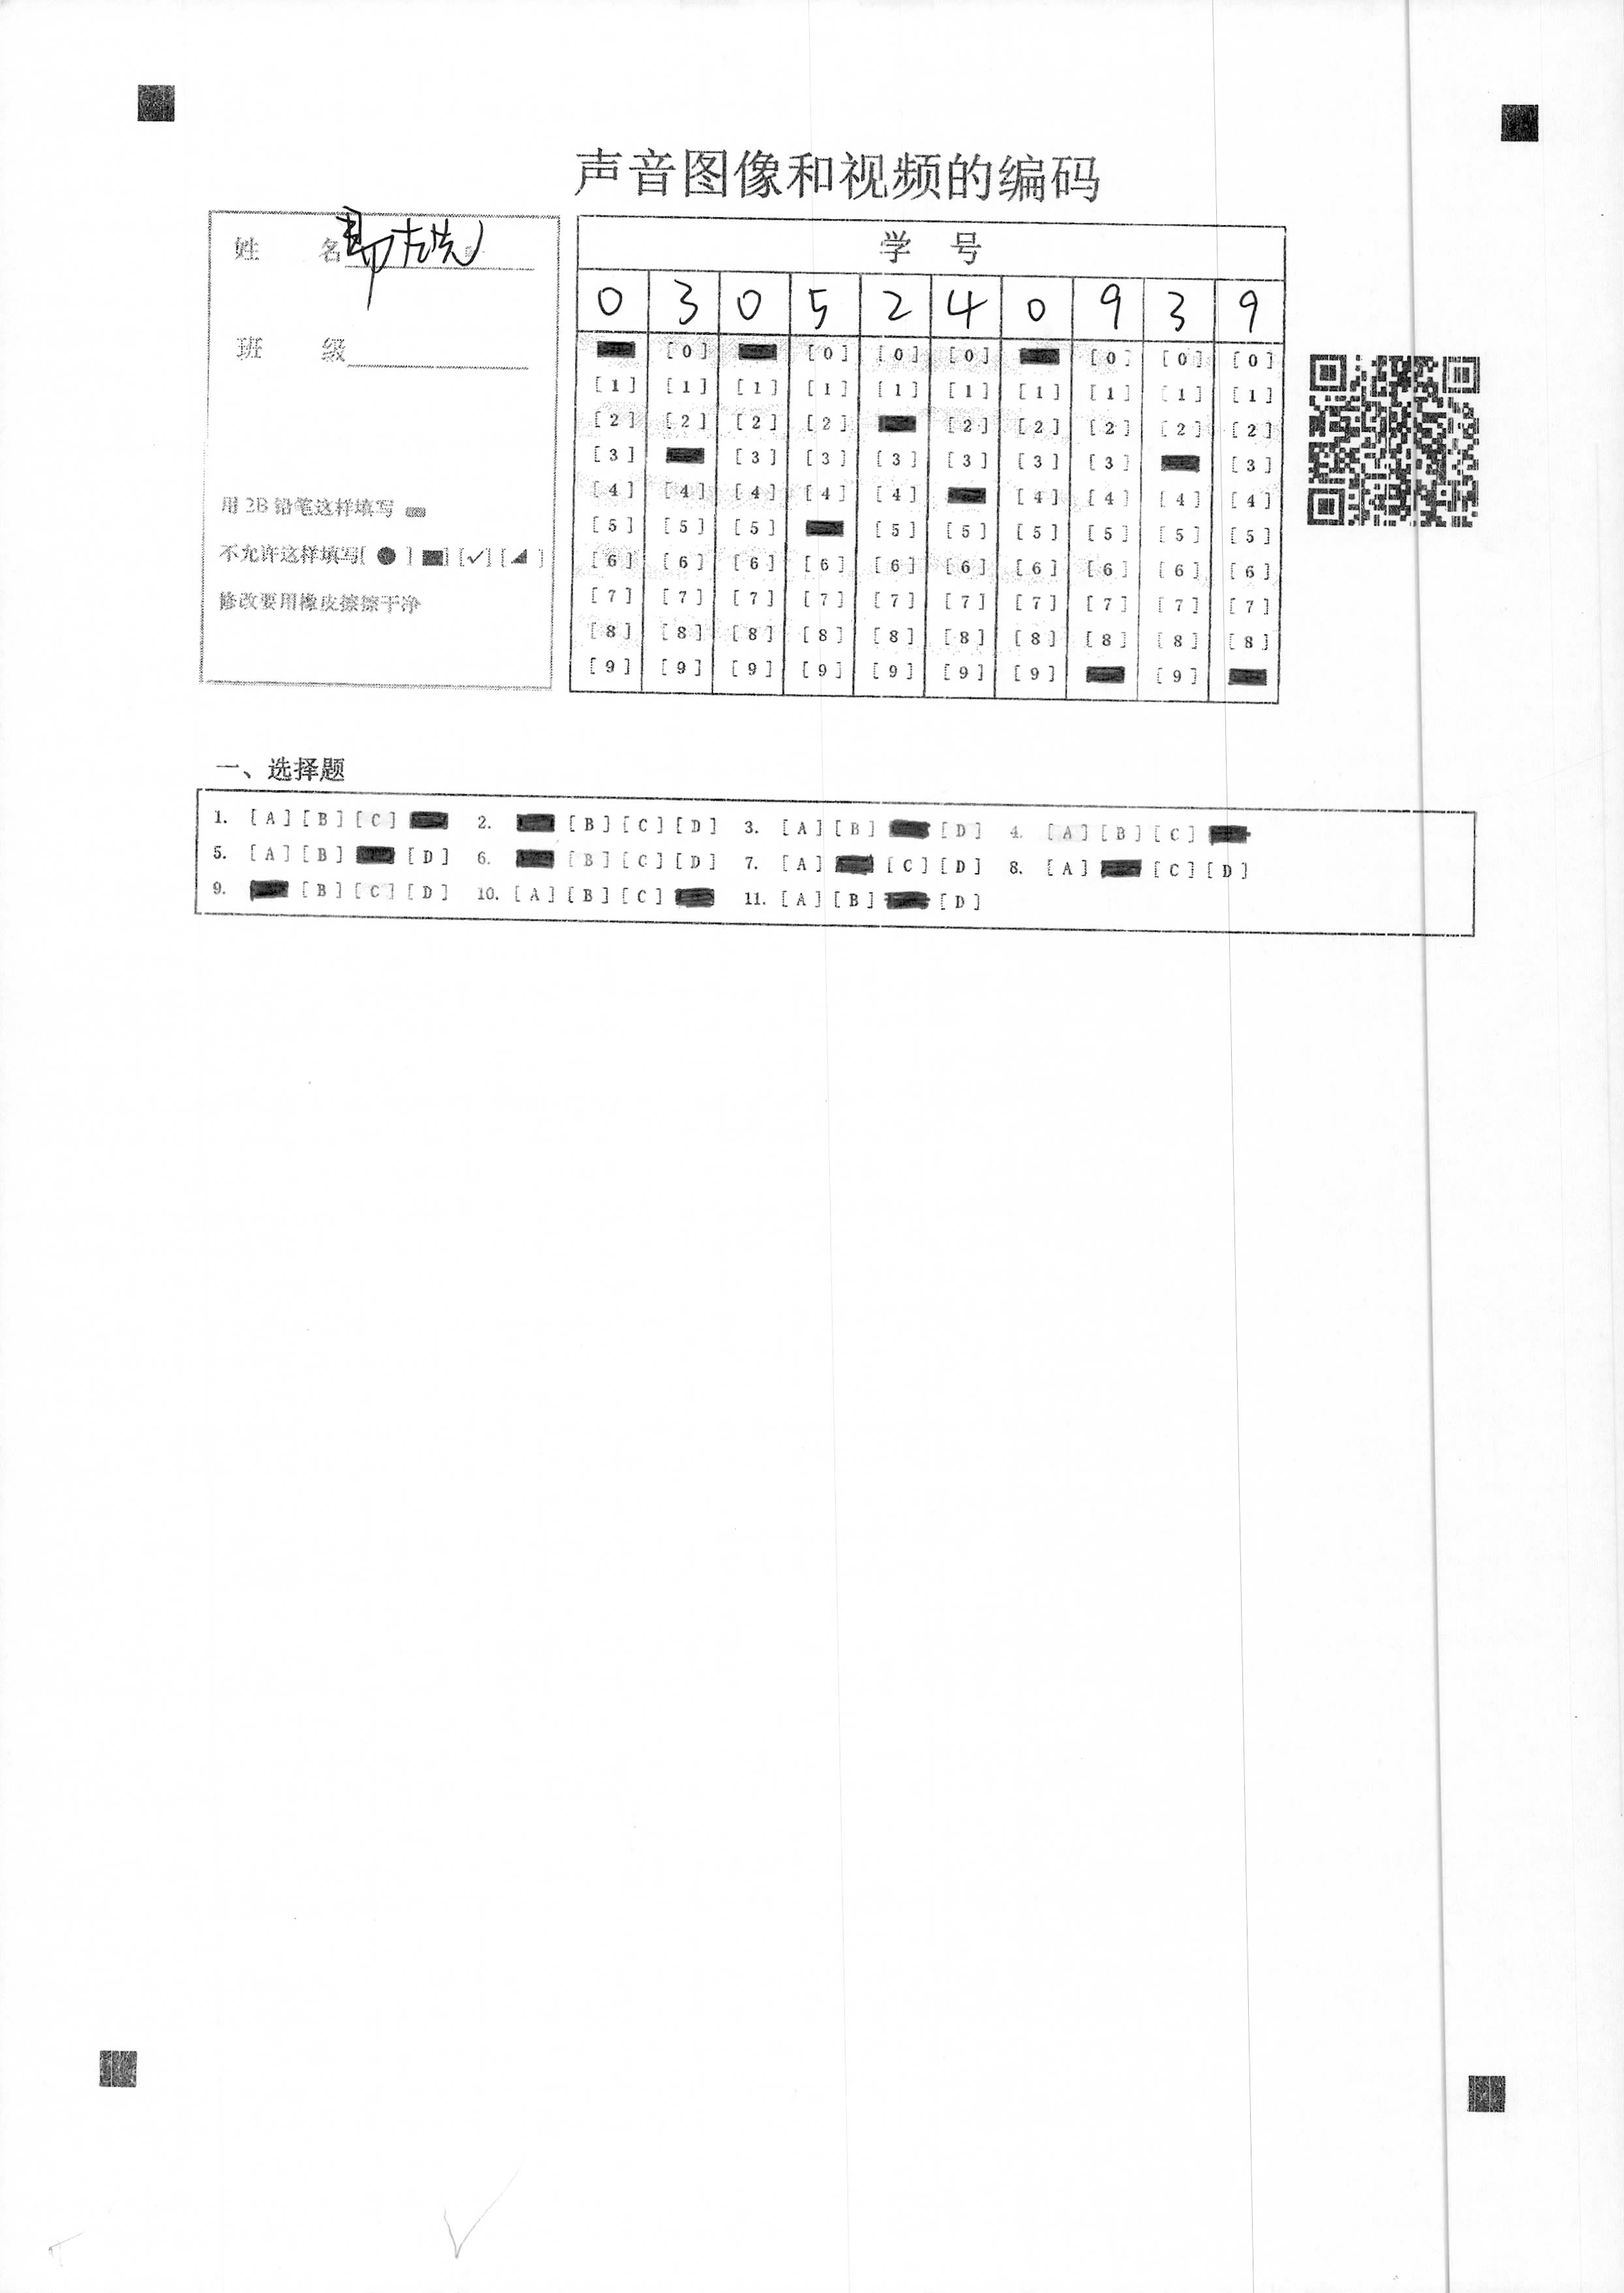 声音图像和视频的编码
姓 名
班 级
用 2B 铅笔这样填写
不允许这样填写[ ● ] [■] [✓] [◢ ]
修改要用橡皮擦擦干净
学 号
0 3 0 5 2 4 0 9 3 9
[0] [0] [0] [0] [0] [0] [0]
[1] [1] [1] [1] [1] [1] [1] [1] [1] [1]
[2] [2] [2] [2] [2] [2] [2] [2] [2]
[3] [3] [3] [3] [3] [3] [3] [3]
[4] [4] [4] [4] [4] [4] [4] [4] [4]
[5] [5] [5] [5] [5] [5] [5] [5] [5]
[6] [6] [6] [6] [6] [6] [6] [6] [6] [6]
[7] [7] [7] [7] [7] [7] [7] [7] [7] [7]
[8] [8] [8] [8] [8] [8] [8] [8] [8] [8]
[9] [9] [9] [9] [9] [9] [9] [9]
一、选择题
1. [A] [B] [C] 2. [B] [C] [D] 3. [A] [B] [D] 4. [A] [B] [C]
5. [A] [B] [D] 6. [B] [C] [D] 7. [A] [C] [D] 8. [A] [C] [D]
9. [B] [C] [D] 10. [A] [B] [C] 11. [A] [B] [D]